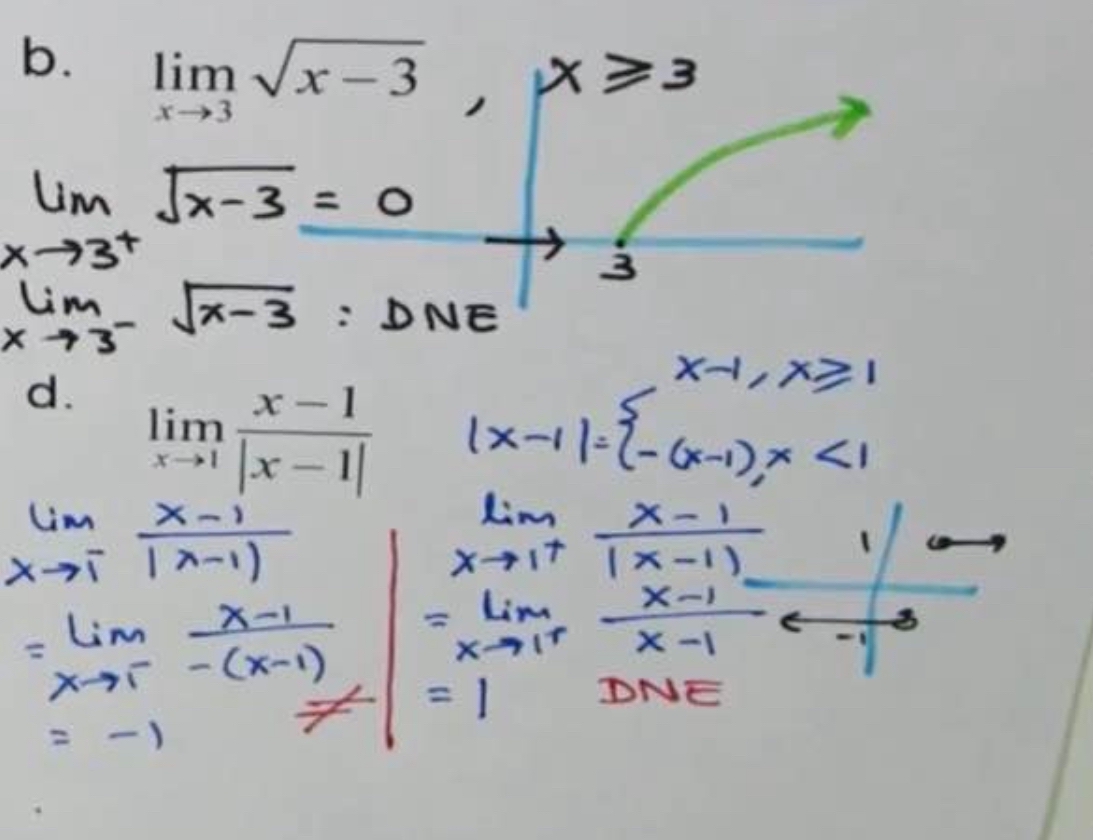 b. lim x→3 √x − 3 , x ⩾ 3
lim x→3⁺ √x−3 = 0
3
lim x→3⁻ √x−3 : DNE
d. lim x→1 x − 1 / |x − 1|
|x−1| = { x−1, x⩾1
−(x−1), x <1
lim x→1⁻ x−1 / |x−1|
= lim x→1⁻ x−1 / −(x−1)
= −1
≠
lim x→1⁺ x−1 / |x−1|
= lim x→1⁺ x−1 / x−1
= 1 DNE
1
−1